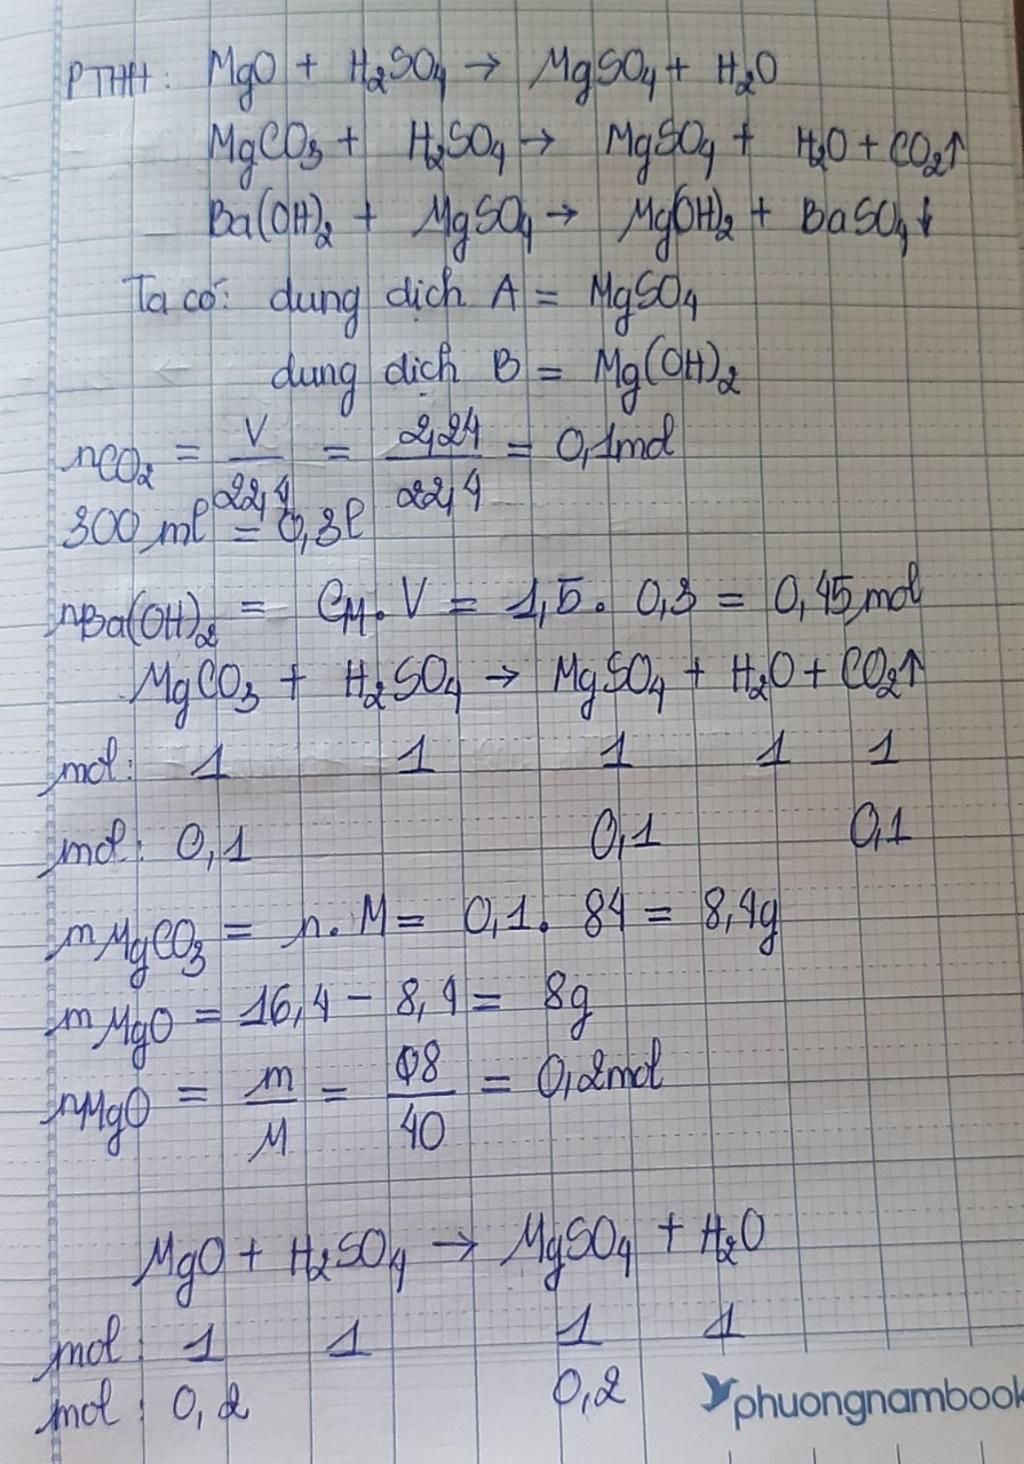 PTHH: MgO + H₂SO₄ → MgSO₄ + H₂O
MgCO₃ + H₂SO₄ → MgSO₄ + H₂O + CO₂↑
Ba(OH)₂ + MgSO₄ → Mg(OH)₂ + BaSO₄↓
Ta có: dung dịch A = MgSO₄
dung dịch B = Mg(OH)₂
nCO₂ = V/22,4 = 2,24/22,4 = 0,1mol
300 ml = 0,3l
nBa(OH)₂ = CM. V = 1,5. 0,3 = 0,45mol
MgCO₃ + H₂SO₄ → MgSO₄ + H₂O + CO₂↑
mol: 1 1 1 1 1
mol: 0,1 0,1 0,1
mMgCO₃ = n. M = 0,1. 84 = 8,4g
mMgO = 16,4 - 8,4 = 8g
nMgO = m/M = 8/40 = 0,2mol
MgO + H₂SO₄ → MgSO₄ + H₂O
mol: 1 1 1 1
mol: 0,2 0,2
phuongnambook